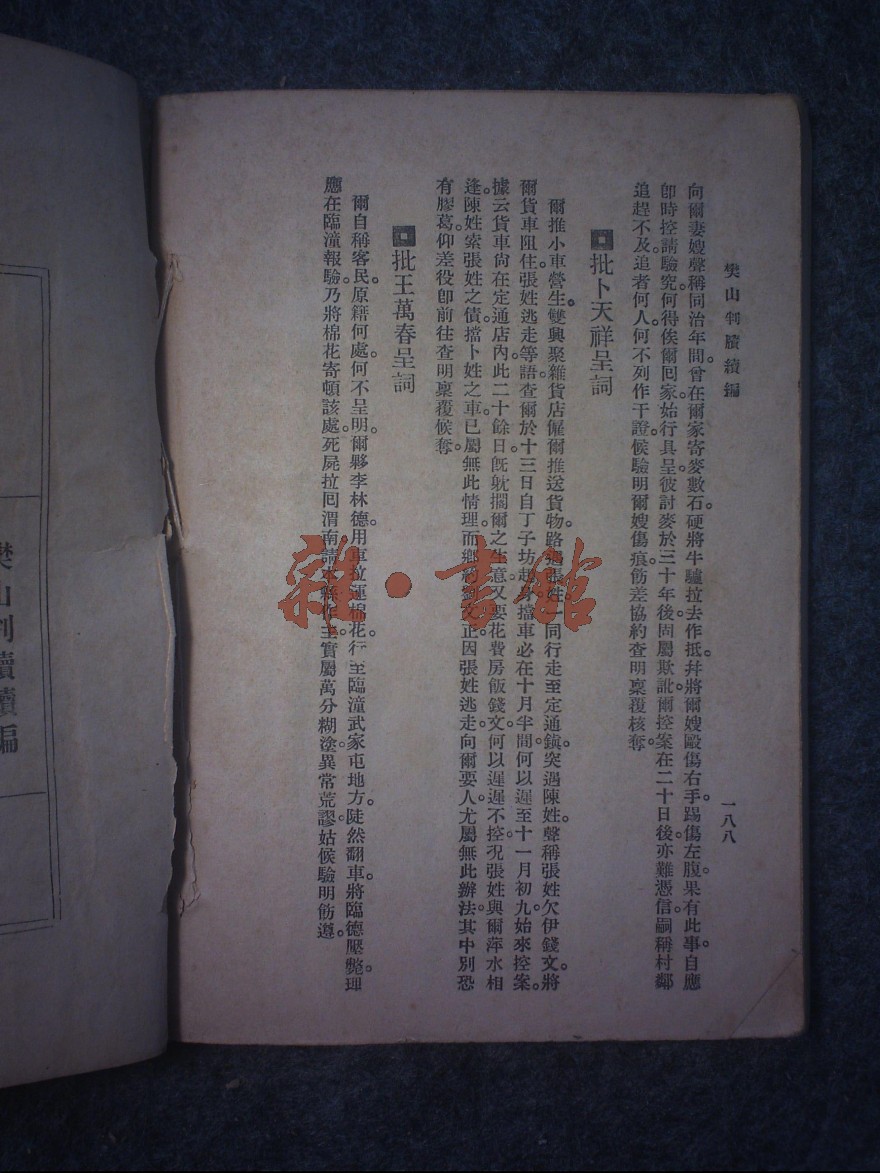 樊山判牘續編
一八八
向爾妻嫂聲稱同治年間。曾在爾家寄麥數石。硬將牛驢拉去作抵。幷將爾嫂毆傷右手。踢傷左腹。果有此事。自應
卽時控請驗究。何得俟爾囘家。始行具呈。彼討麥於三十年後。固屬欺訛。爾控案在二十日後。亦難憑信。嗣稱村鄰
追趕不及。追者何人。何不列作干證。候驗明爾嫂傷痕。飭差協約查明稟覆核奪。
批卜天祥呈詞
爾推小車營生。雙興聚雜貨店僱爾推送貨物。路遇張姓。一同行走至定通鎭。突遇陳姓。聲稱張姓欠伊錢文。將
爾貨車阻住。張姓逃走等語。查爾於十三日自丁子坊起身。擋車必在十月半間。何以遲至十一月初九始來控案。
據云貨車尙在定通店內。此二十餘日。旣躭擱爾之生意。又要花費房飯錢文。何以遲遲不控。況張姓與爾萍水相
逢。陳姓索張姓之債。擋卜姓之車。已屬無此情理。而鄉約劉文正因張姓逃走。向爾要人。尤屬無此辦法。其中別恐
有膠葛。仰差役卽前往查明稟覆候奪。
批王萬春呈詞
爾自稱客民。原籍何處。何不呈明。爾夥李林德。用車拉運棉花。行至臨潼武家屯地方。陡然翻車。將臨德壓斃。理
應在臨潼報驗。乃將棉花寄頓該處。死屍拉囘渭南。請本縣作主。實屬萬分糊塗。異常荒謬。姑候驗明飭遵。
樊山判牘續編
雜·書館